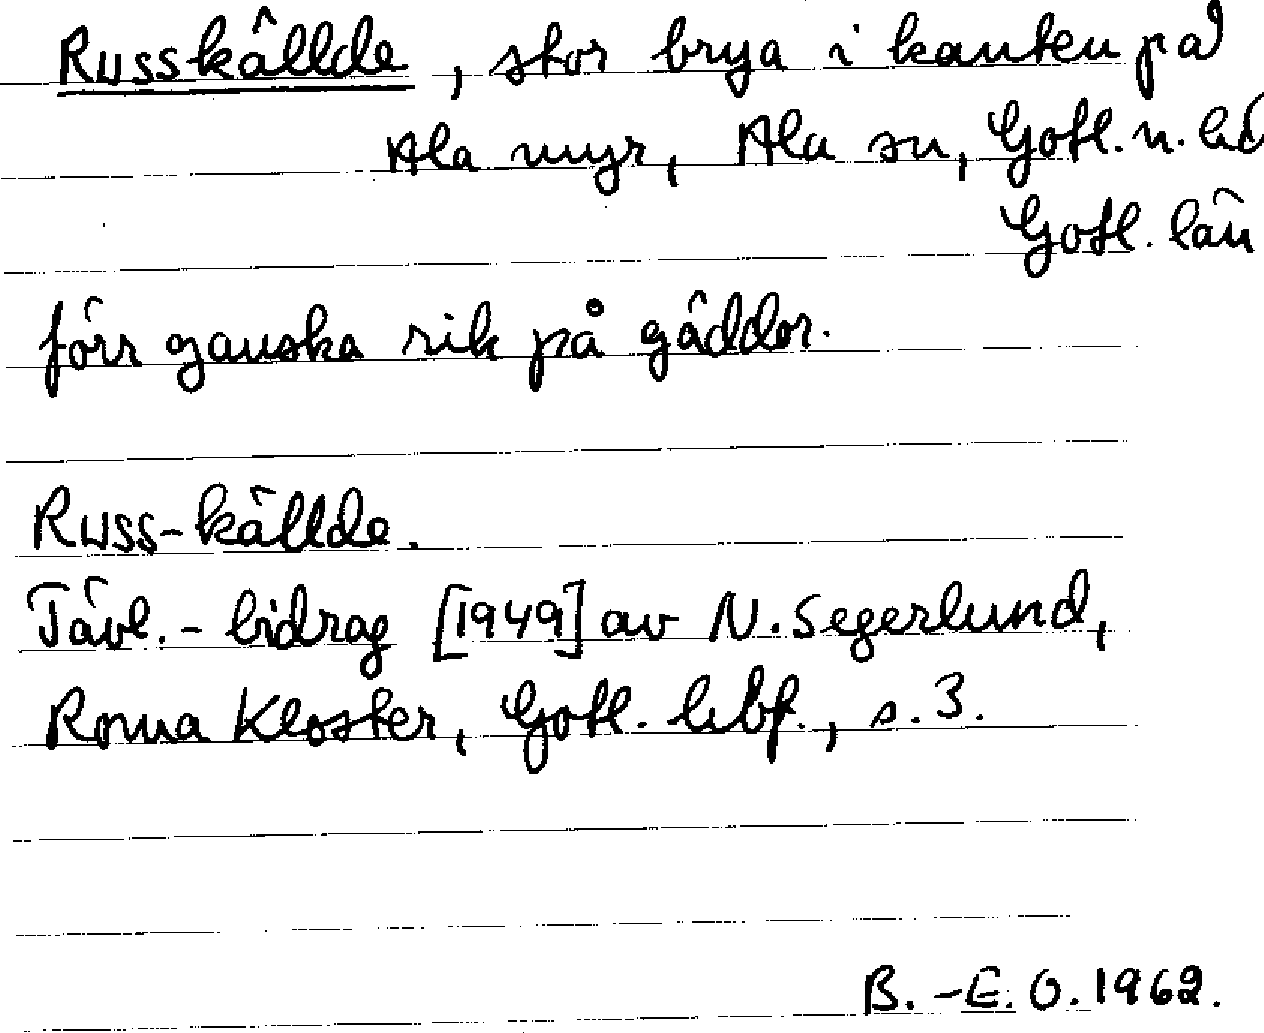 Russkällde, stor brya i kanten på
Ala myr, Ala sn, Gotl. n. hd
Gotl. län
förr ganska rik på gäddor.
Russ-källde.
Tävl.-bidrag [1949] av N. Segerlund,
Roma Kloster, Gotl. lbf., s. 3.
B.-E. O. 1962.